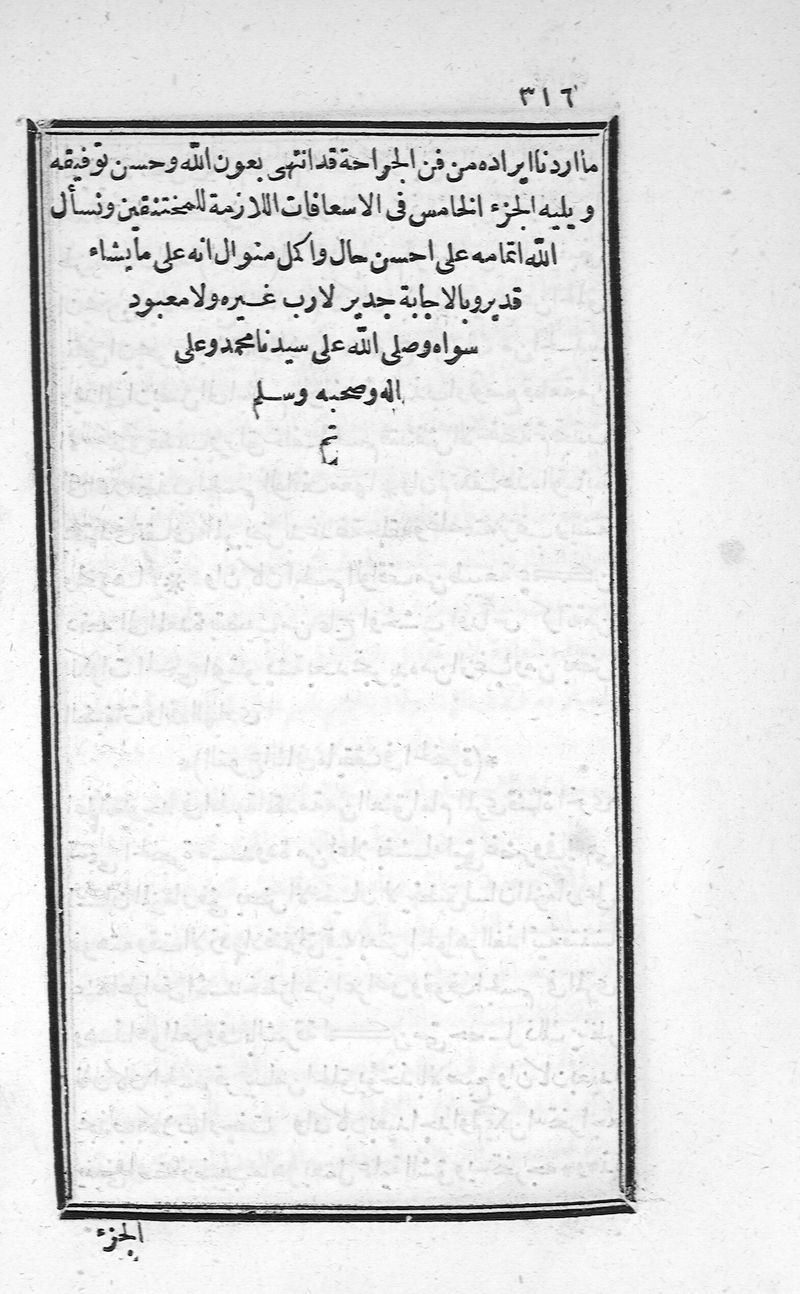 ٣١٦
ما اردنا ايراده من فن الجراحة قد انتهى بعون الله وحسن توفيقه
ويليه الجزء الخامس فى الاسعافات اللازمة للمختنقين ونسأل
الله اتمامه على احسن حال واكمل منوال انه على ما يشاء
قدير وبالاجابة جدير لا رب غيره ولا معبود
سواه وصلى الله على سيدنا محمد وعلى
اله وصحبه وسلم
تم
الجزء